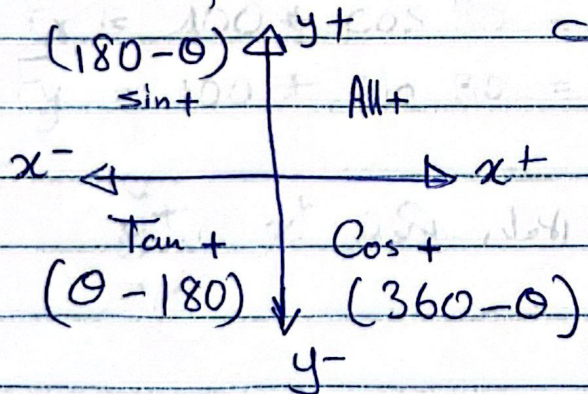 (180-θ) y+
sin+ All+
x- x+
Tan + Cos +
(θ - 180) (360-θ)
y-